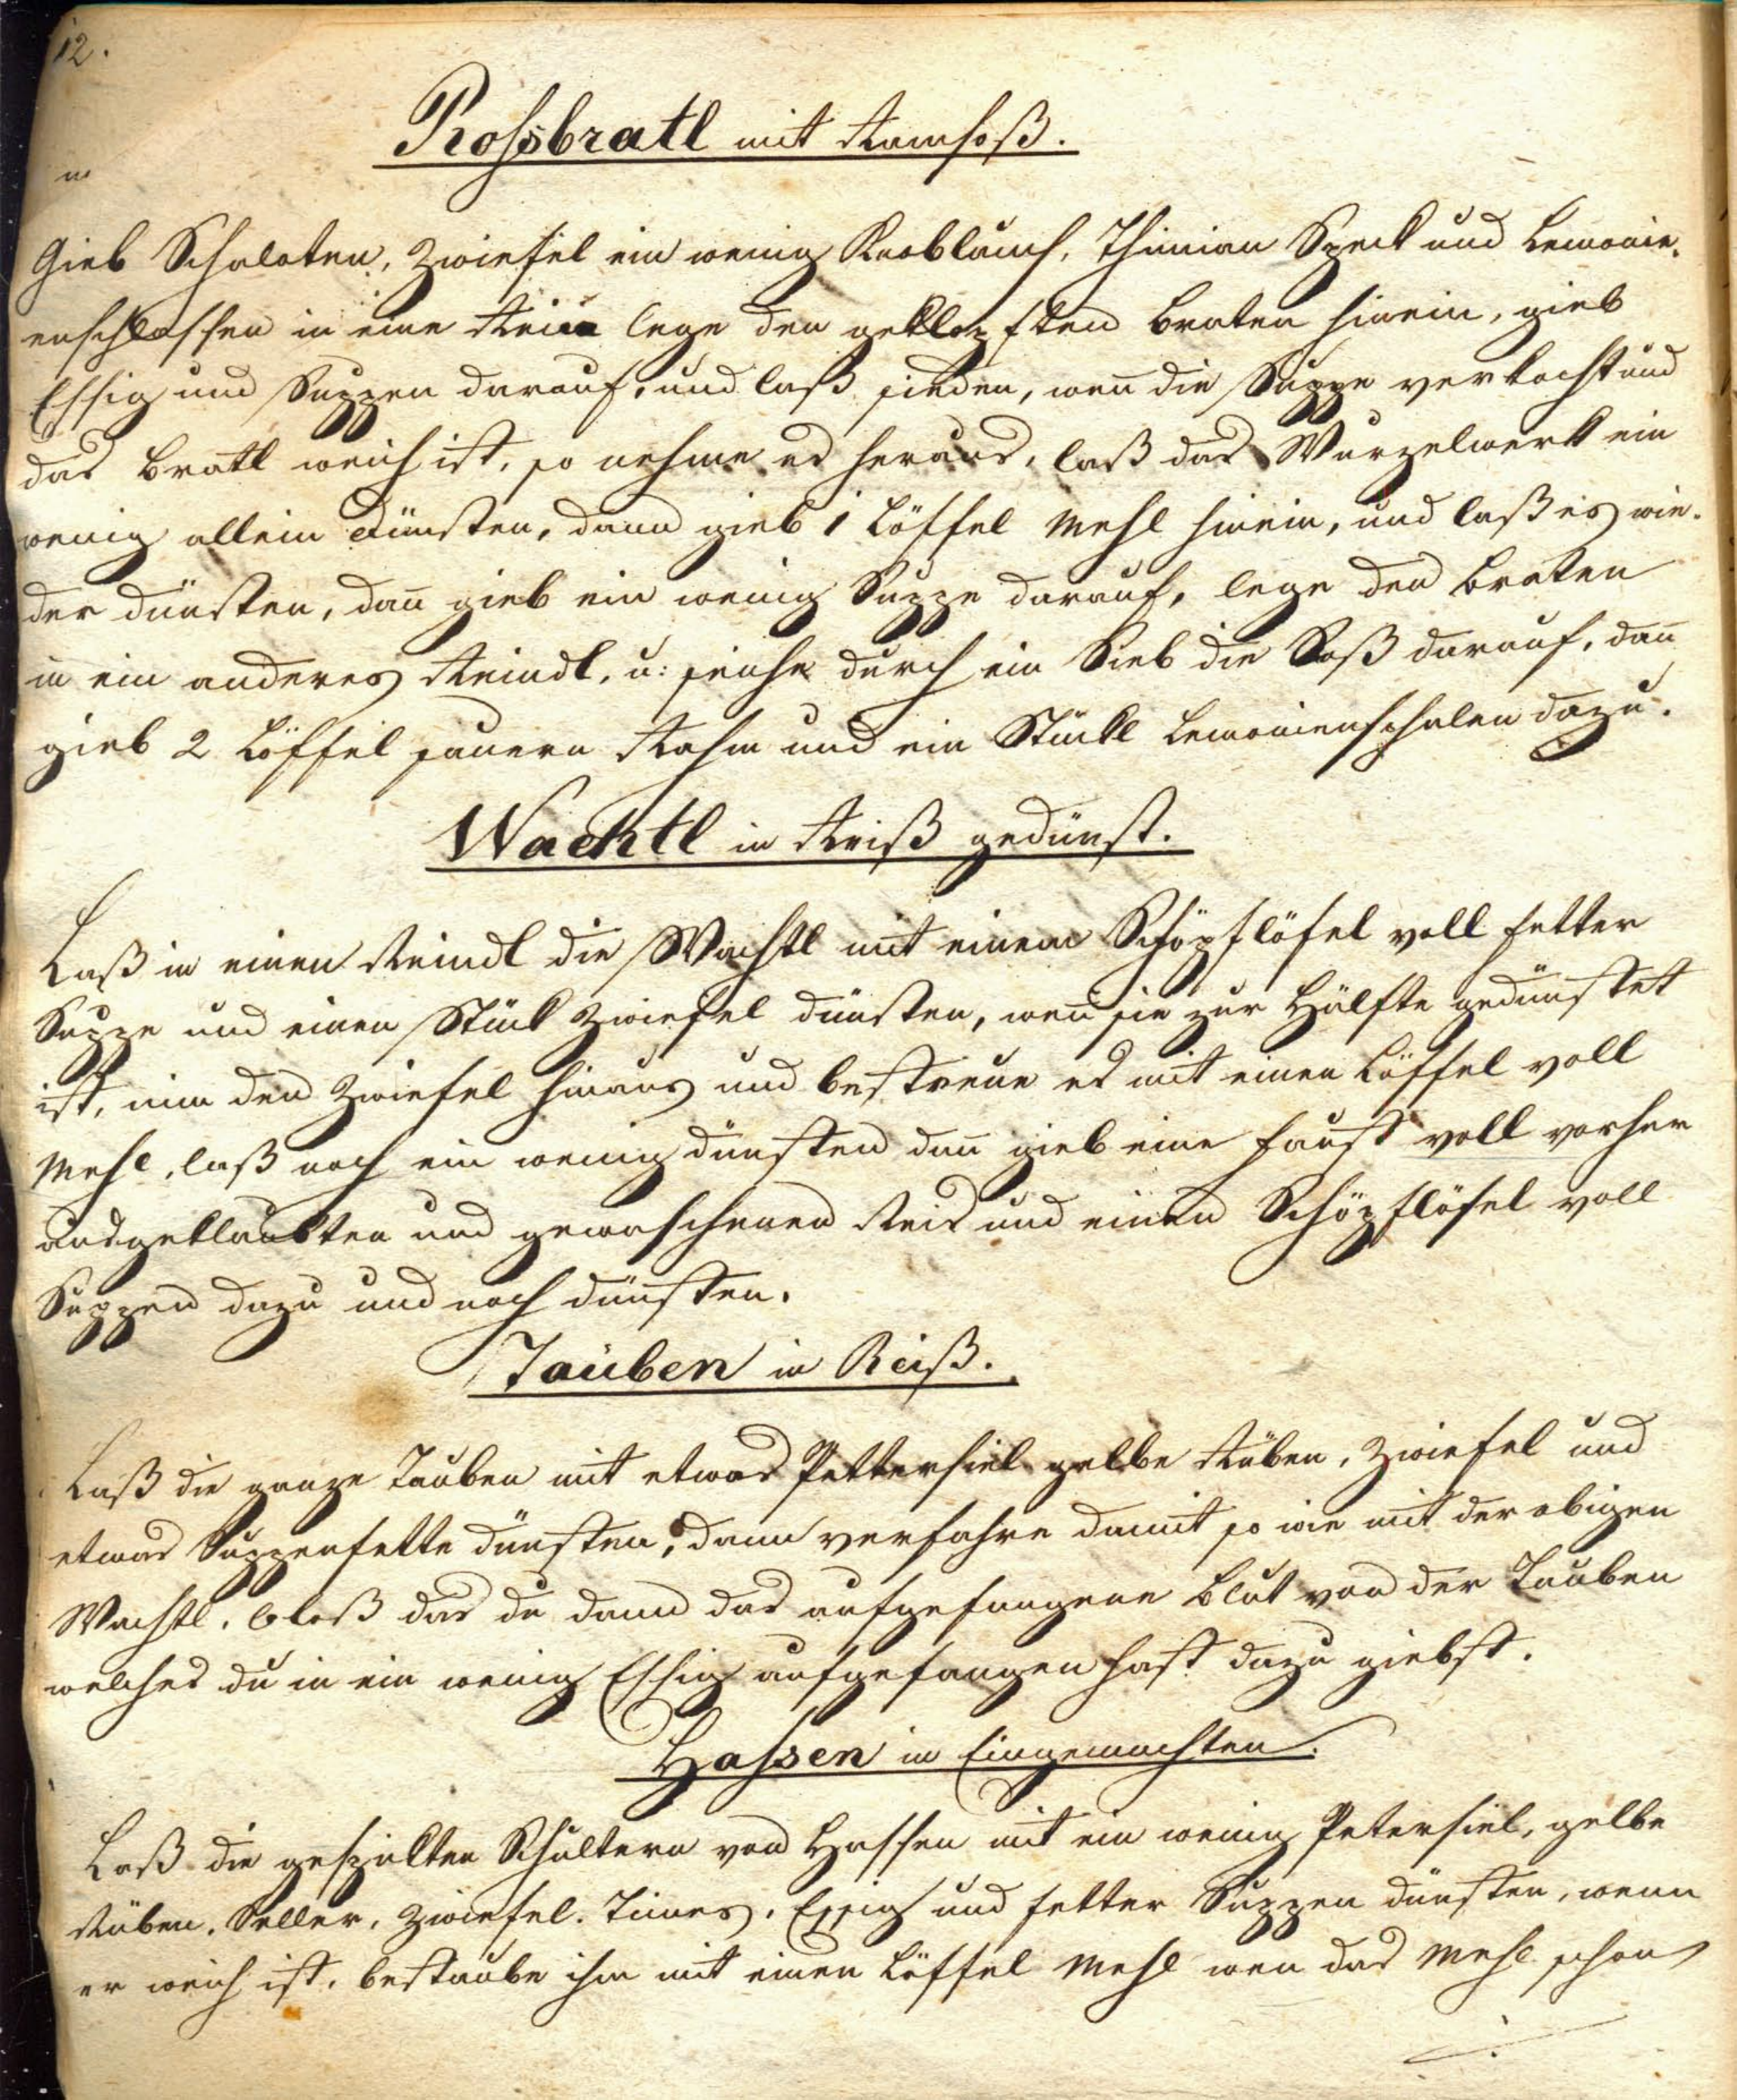 12.
Rossbratl mit Ramsoß.
Gieb Schaloten, Zwiefel ein wenig Knoblauch, Thimian Speck und Lemonie-
enschlassen in eine Rein lege den geklopften Braten hinein, gieb
Essig und Suppen darauf, und laß sieden, wen̄ die Suppe verkocht und
das Bratl weich ist, so nehme es heraus, laß das Wurzelwerk ein
wenig allein dünsten, dann gieb 1 Löffel Mehl hinein, und laß es wie-
der dünsten, dan̄ gieb ein wenig Suppe darauf, lege den Braten
in ein anderes Reindl, u: seiche durch ein Sieb die Soß darauf, dan̄
gieb 2 Löffel sauern Rahm und ein Stückl Lemonienschalen dazu.
Wachtl in Reiß gedünst.
Laß in einen Reindl die Wachtl mit einem Schöpflöfel voll fetter
Suppe und einen Stück Zwiefel dünsten, wen̄ sie zur Hälfte gedünstet
ist, nim den Zwiefel hinaus und bestreue es mit einen Löffel voll
Mehl, laß noch ein wenig dünsten dan̄ gieb eine Faust voll vorher
ausgeklaubten und gewaschenen Reis und einen Schöpflöfel voll
Suppen dazu und noch dünsten.
Tauben in Reiß.
Laß die ganze Tauben mit etwas Pettersiel gelbe Rüben, Zwiefel und
etwas Suppenfette dünsten, dann verfahre damit so wie mit der obigen
Wachtl, bloß das du dann das aufgefangene Blut von der Tauben
welches du in ein wenig Essig aufgefangen hast dazu giebst.
Hassen in Eingemachten.
Laß die gespikten Schultern von Hassen mit ein wenig Petersiel, gelbe
Rüben, Seller, Zwiefel. Times, Essig und fetter Suppen dünsten, wenn
er weich ist, bestaube ihm mit einen Löffel Mehl wen das Mehl schon